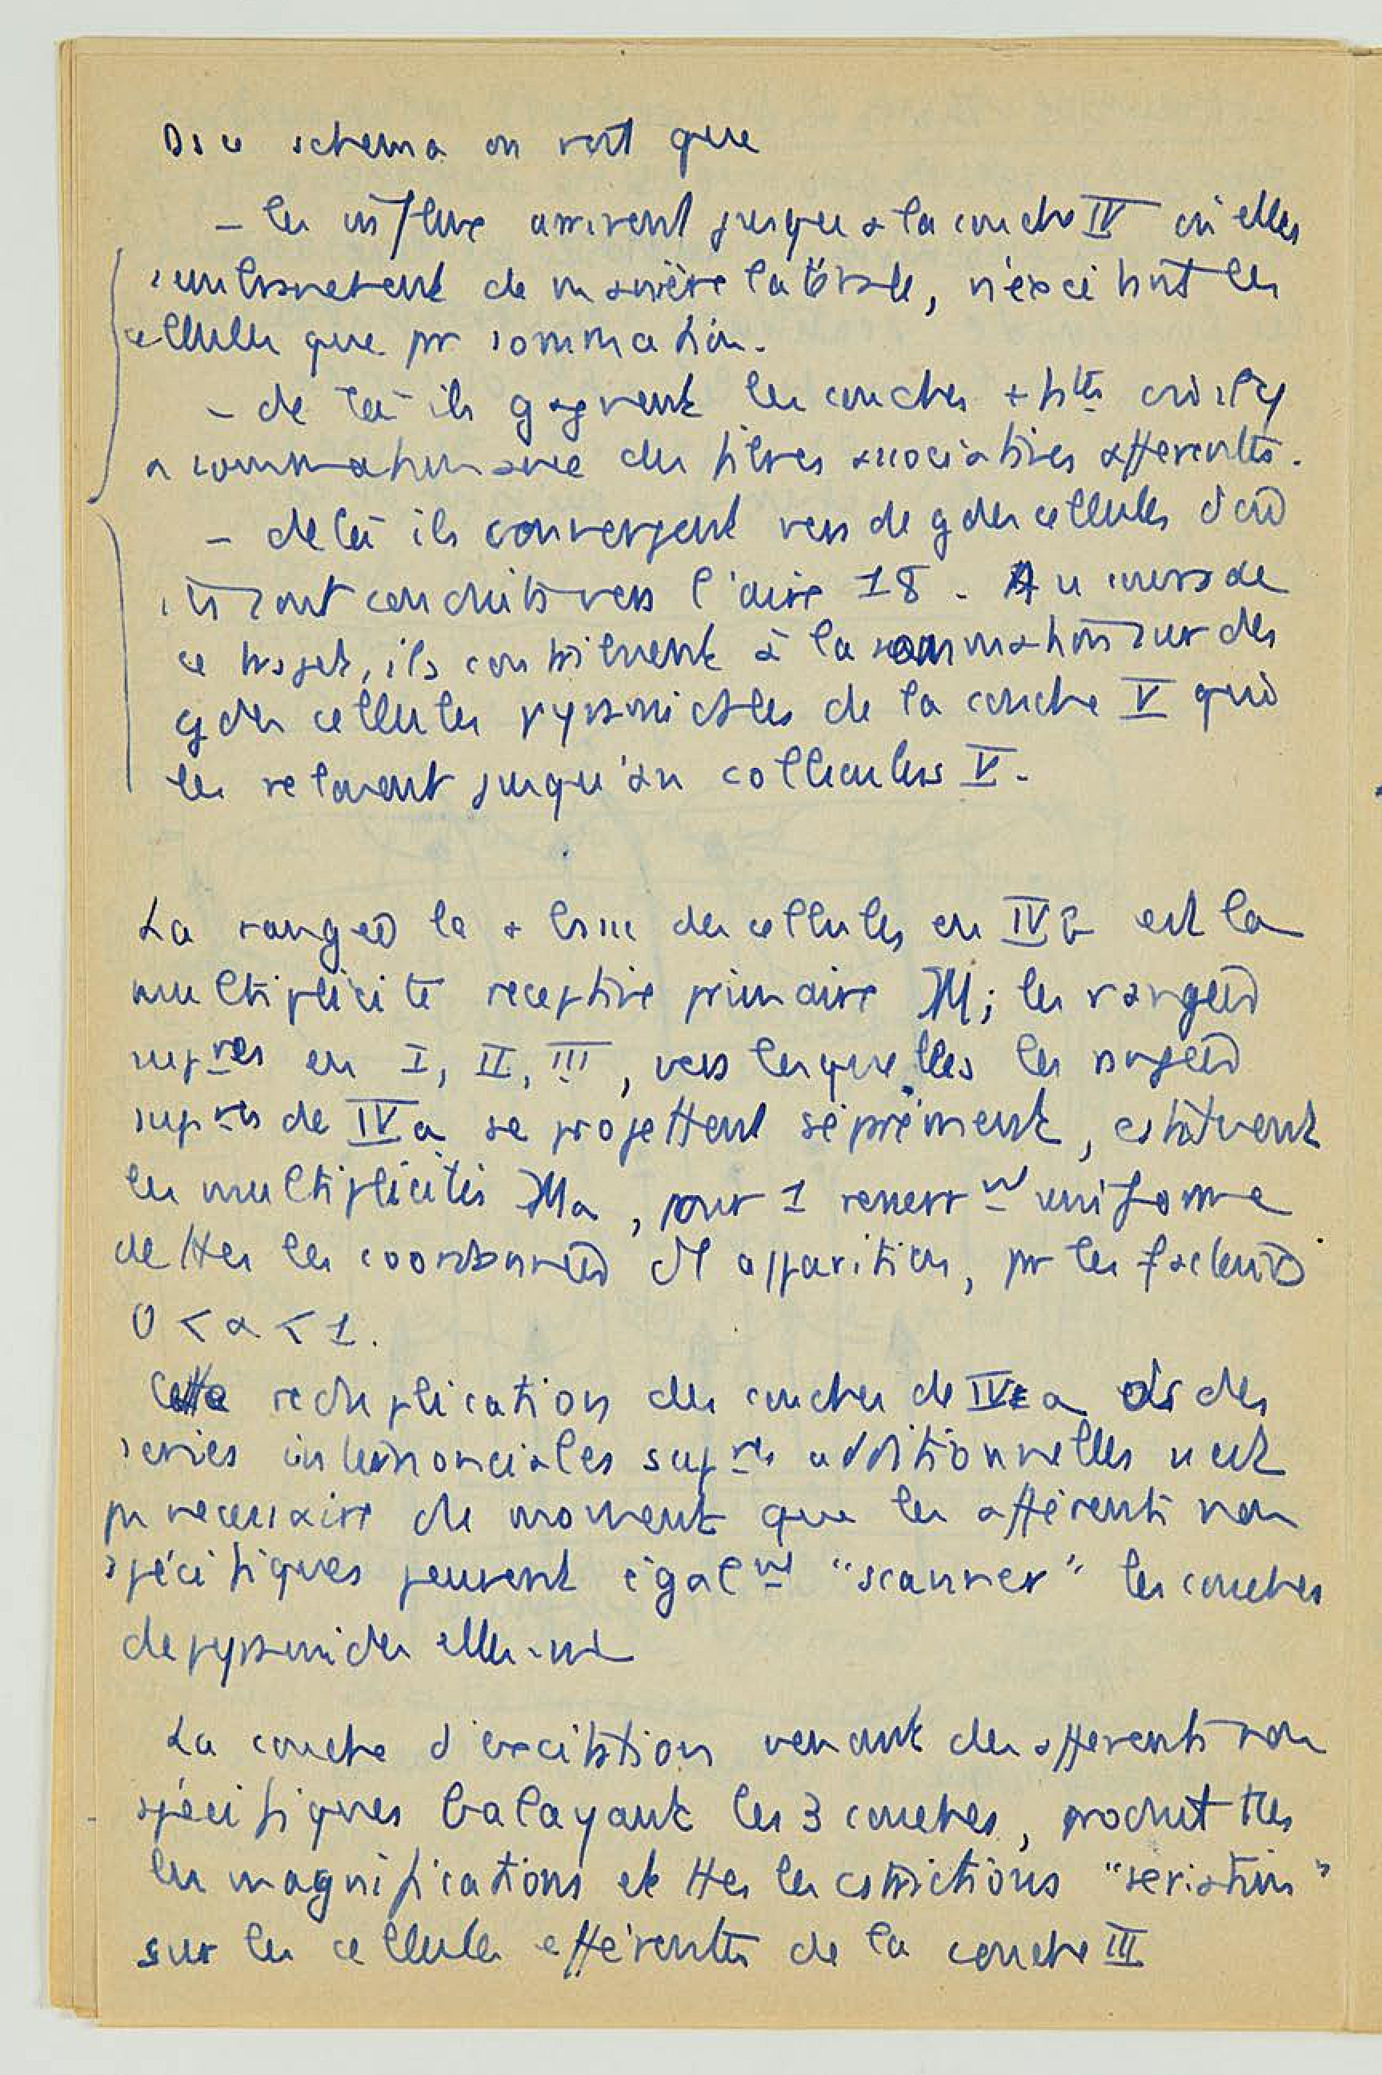 Ds ce schema on voit que
- les influx arrivent jusque a la couche IV où elles
de manière latérale, n'excitant les
cellules que pr sommation.
- de là ils gagnent les couches + où il y
a sommation avec des fibres associatives afferentes.
- de là ils convergent vers de gdes cellules d'où
ils sont conduits vers l'aire 18. Au cours de
ce trajet, ils contribuent à la sommation sur des
gdes cellules pyramidales de la couche V qui
les relaient jusqu'au colliculus V.
La rangée la + basse des cellules en IV b est la
multiplicité receptive primaire M; les rangées
supres en I, II, III, vers lesquelles les rangées
supres de IV a se projettent séprément, cstituent
les multiplicités Ma, pour 1 resserrmt uniforme
de ttes les coordonnées d'1 apparition, pr les facteurs
0 < α < 1.
Cette reduplication des couches de IV a ds des
series internonciales supres additionnelles n'est
ps necessaire du moment que les afférents non
spécifiques peuvent égalmt "scanner" les couches
de pyramides elles-m
La couche d'excitation venant des afferents non
spécifiques balayant les 3 couches, produit ttes
les magnifications et ttes les cstrictions
sur les cellules efférentes de la couche III